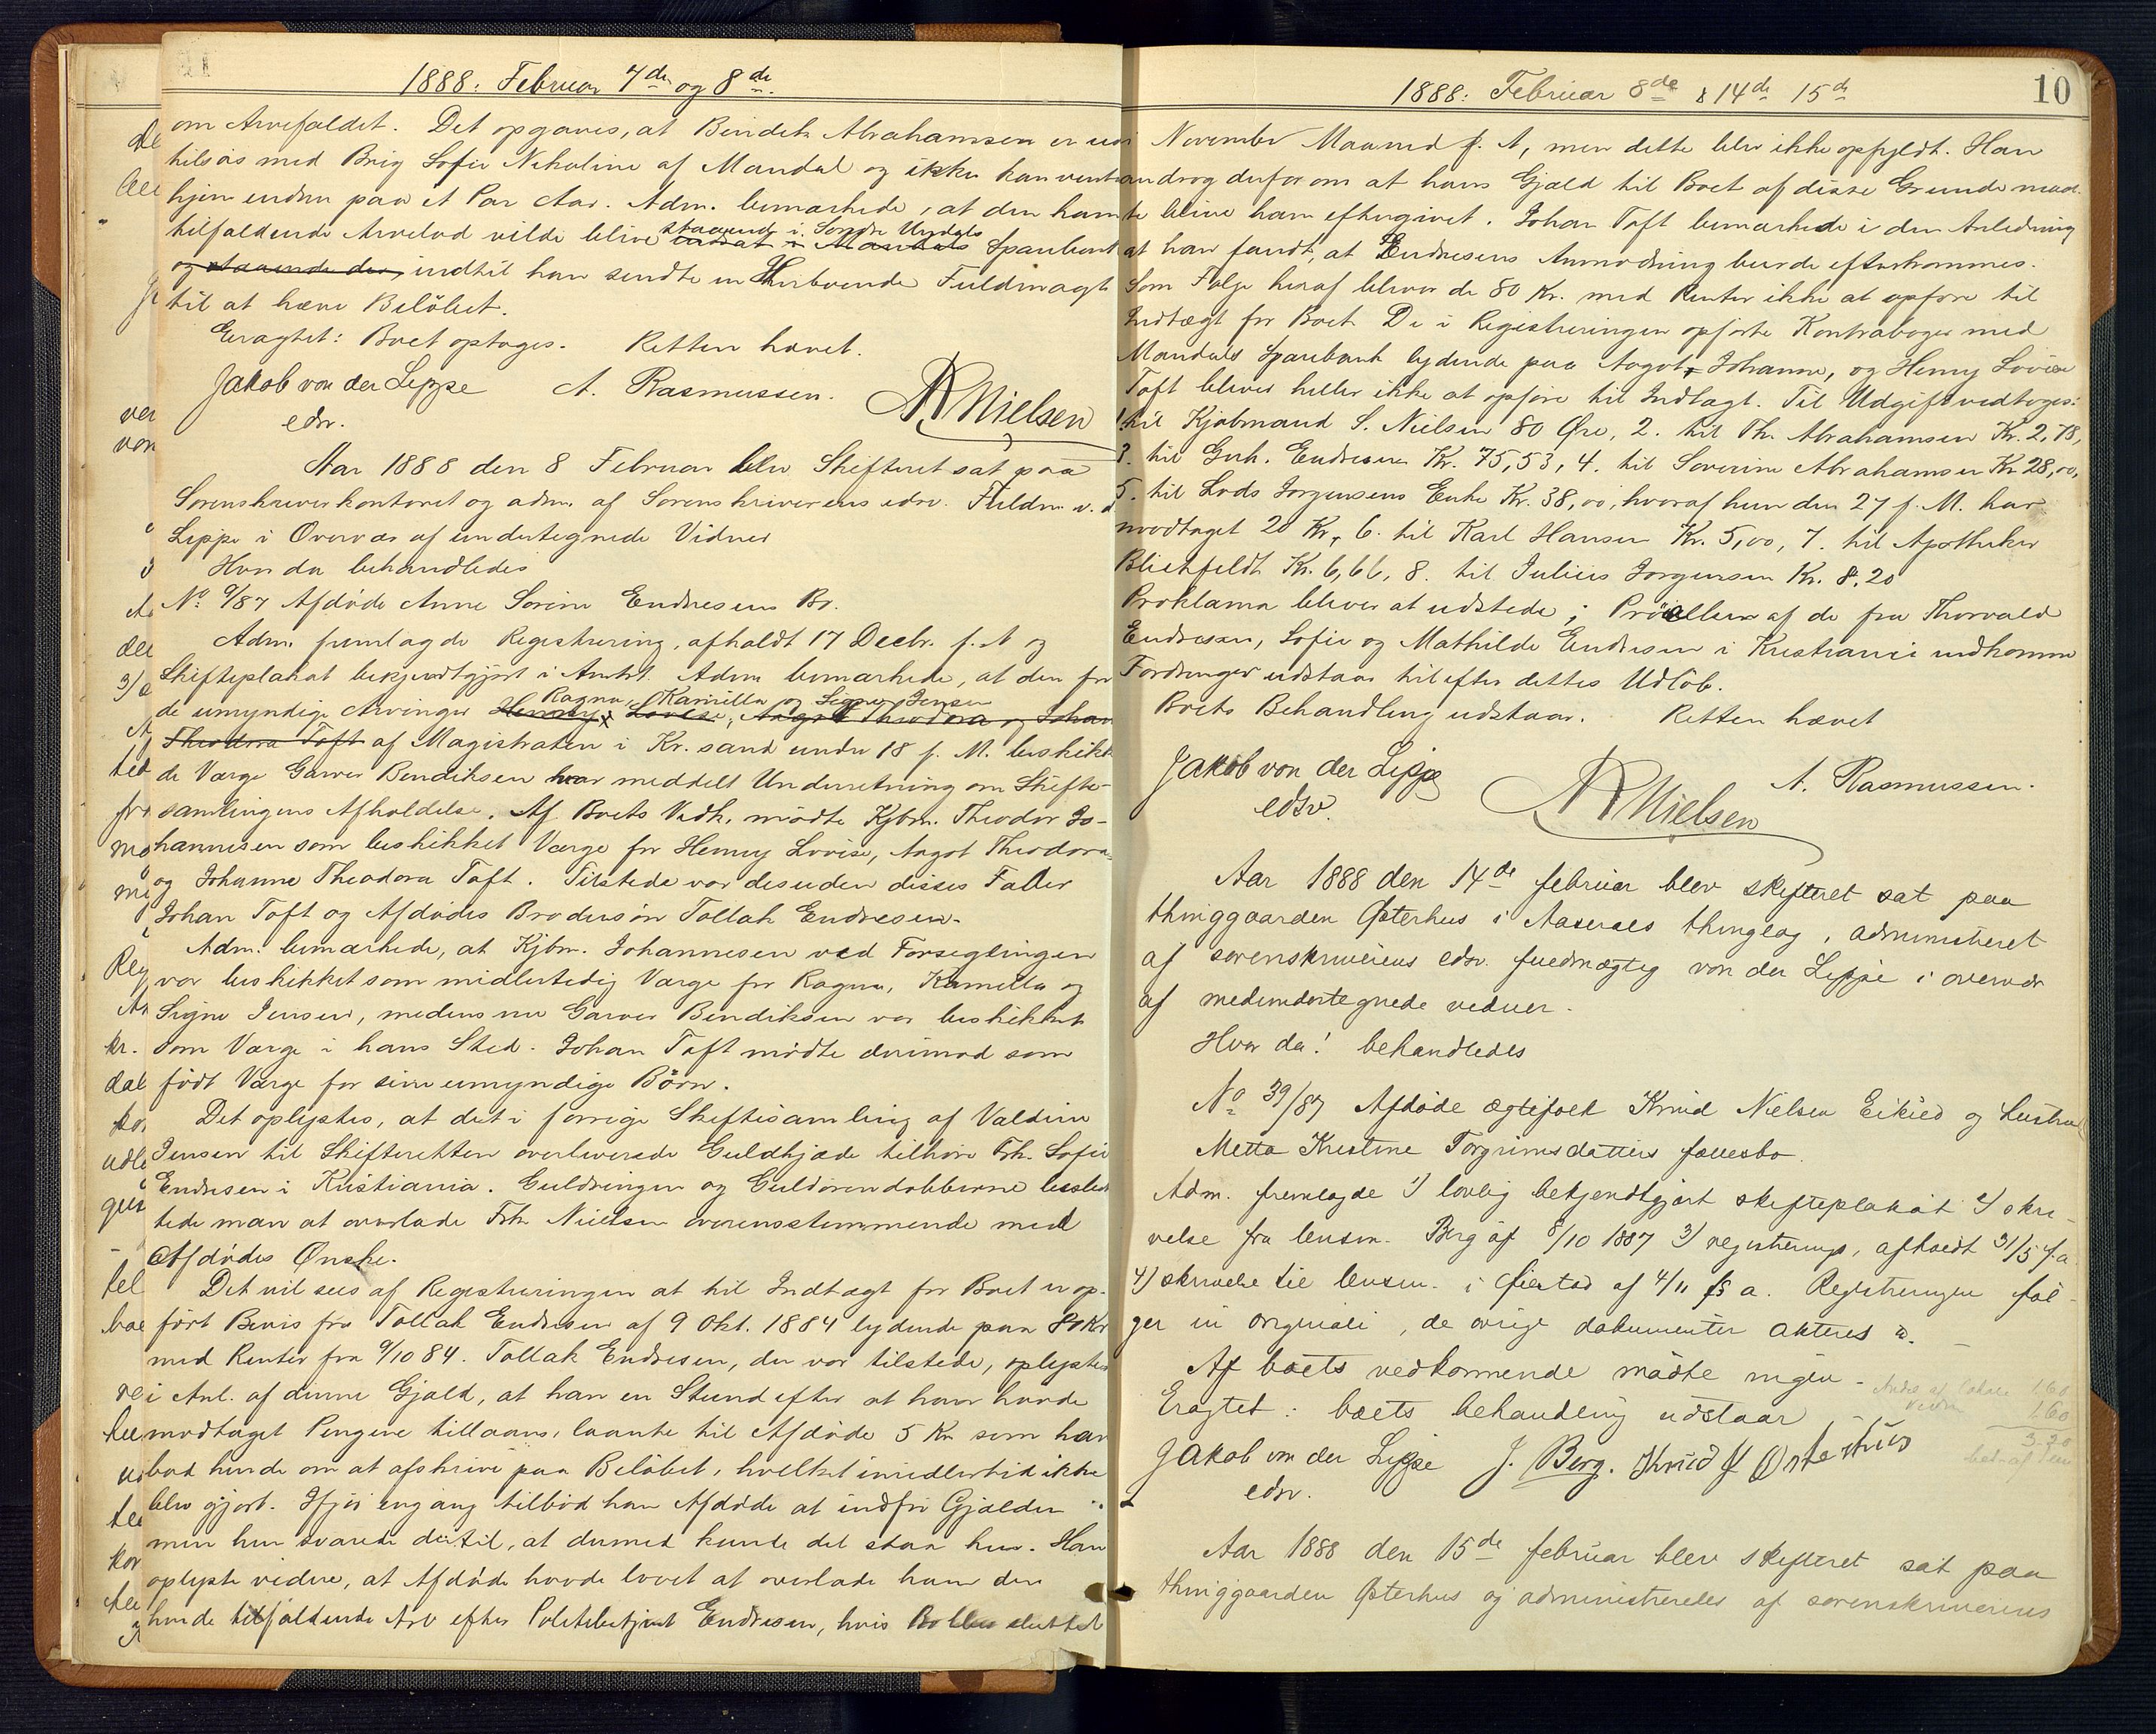 1888: Februar 7de og 8de.
om Arvefaldet. Det opgaves, at Bendik Abrahamsen er
tilsøs med Brig Sofie Nikoline af Mandal og ikke kan vent
hjem enden paa et Par Aar. Adm. bemærkede, at den ham
tilfaldende Arvelod vilde blive staaende i Søndre Undals Sparebank
og staaende der, indtil han sendte en Herboende Fuldmagt
til at hæve Beløbet.
Eragtet: Boet optages. Retten hævet.
Jakob von der Lippe A. Rasmussen. Nielsen
edsv.
Aar 1888 den 8 Februar blev Skifteret sat paa
Sorenskriverkontoret og adm. af Sorenskriverens edsv. Fuldm. v. d.
Lippe i Overvær af undertegnede Vidner
Hvor da behandledes
No. 9/87 Afdøde Anne Sorine Endresens Bo.
Adm. fremlagde Registrering, afholdt 17 Decbr. f. A og
Skifteplakat bekjendtgjort i Amtst. Adm bemærkede, at den for
Ragna, Kamilla og Signe Jensen
de umyndige Arvinger Henny Lovise, Aagot Theodora og Johan
Theodora Toft af Magistraten i Kr.sand under 18 f. M. beskikke
de Værge Garver Bendiksen var meddelt Underretning om Skifte-
samlingens Afholdelse. Af Boets Vedk. mødte Kjbm. Theodor Jo-
hannesen som beskikket Værge for Henny Lovise, Aagot Theodora
og Johanne Theodora Toft. Tilstede var desuden disses Fader
Johan Toft og Afdødes Brodersøn Tollak Endresen.
Adm. bemærkede, at Kjbm. Johannesen ved Forseglingen
var beskikket som midlertidig Værge for Ragna, Kamilla og
Signe Jensen, medens nu Garver Bendiksen var beskikket
som Værge i hans Sted. Johan Toft mødte derimod som
født Værge for sine umyndige Børn.
Det oplystes, at det i forrige Skiftesamling af Valdine
Jensen til Skifteretten overleverede Guldkjæde tilhøre Frk. Sofie
Endresen i Kristiania. Guldringen og Guldørendobberne beslut
tede man at overlade Frk. Nielsen overensstemmende med
Afdødes Ønske.
Det vil sees af Registreringen at til Indtægt for Boet er op-
ført Bevis fra Tollak Endresen af 9 Okt. 1884 lydende paa 80 Kr
med Renter fra 9/10 84. Tollak Endresen, der var tilstede, oplyste
i Anl. af denne Gjæld, at han en Stund efter at han havde
modtaget Pengene tillaans, laante til Afdøde 5 Kr som han
bad hende om at afskrive paa Beløbet, hvilket imidlertid ikke
blev gjort. Ifjor engang tilbød han Afdøde at indfri Gjælden
men hun svarede dertil, at dermed kunde det staa hen. Han
oplyste videre, at Afdøde havde lovet at overlade ham den
hende tilfaldende Arv efter Politibetjent Endresen, hvis Bo blev sluttet
1888: Februar 8de & 14de 15de
10
November Maaned f. A, men dette blev ikke opfyldt. Han
androg derfor om at hans Gjæld til Boet af disse Grunde maat
te blive ham eftergivet. Johan Toft bemærkede i den Anledning
at han fandt, at Endresens Anmodning burde efterkommes.
Som Følge heraf bliver de 80 Kr. med Renter ikke at opføre til
Indtægt for Boet. De i Registreringen opførte Kontrabøger med
Mandals Sparebank lydende paa Aagot, Johanne, og Henny Lovise
Toft bliver heller ikke at opføre til Indtægt. Til Udgift vedtoges:
1. til Kjøbmand S. Nielsen 80 Øre, 2. til Th. Abrahamsen Kr. 2,78,
3. til Gerh. Endresen Kr. 75,53, 4. til Severine Abrahamsen Kr 28,00,
5. til Lods Jørgensens Enke Kr. 38,00, hvoraf hun den 27 f. M. har
modtaget 20 Kr, 6. til Karl Hansen Kr. 5,00, 7. til Apotheker
Blichfeldt Kr. 6,66, 8. til Julius Jørgensen Kr. 8,20
Proklama bliver at udstede; Prøvelsen af de fra Thorvald
Endresen, Sofie og Mathilde Endresen i Kristiania indkomne
Fordringer udstaar til efter dettes Udløb.
Boets Behandling udstaar. Retten hævet
Jakob von der Lippe A. Rasmussen.
edsv. Nielsen
Aar 1888 den 14de februar blev skifteret sat paa
thinggaarden Østerhus i Aaserals thinglag, administreret
af sorenskriverens edsv. fuldmægtig von der Lippe i overvær
af medundertegnede vidner.
Hvor da! behandledes
No 39/87 Afdøde ægtefolk Knud Nielsen Eikild og hustru
Mette Kristine Torgrimsdatters fællesbo.
Adm. fremlagde 1) lovlig bekjendtgjort skifteplakat 2) skri-
velse fra lensm. Berg af 8/10 1887 3) registrering, afholdt 31/5 f. a
4) skrivelse til lensm. i af 4/11 f. a. Registreringen føl-
ger in originali, de øvrige dokumenter akteres
Af boets vedkommende mødte ingen.
Eragtet: boets behandling udstaar
1.60
1.60
3.20
Jakob von der Lippe J. Berg. Knud Østerhus
edsv.
Aar 1888 den 15de februar blev skifteret sat paa
thinggaarden Østerhus og administreredes af sorenskriverens